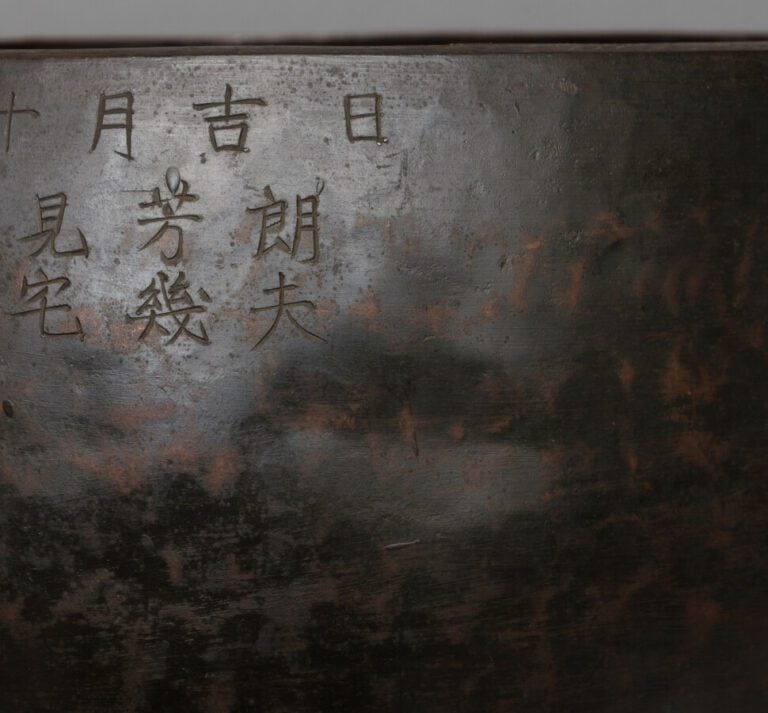 十月吉日
見芳朗
宅幾夫